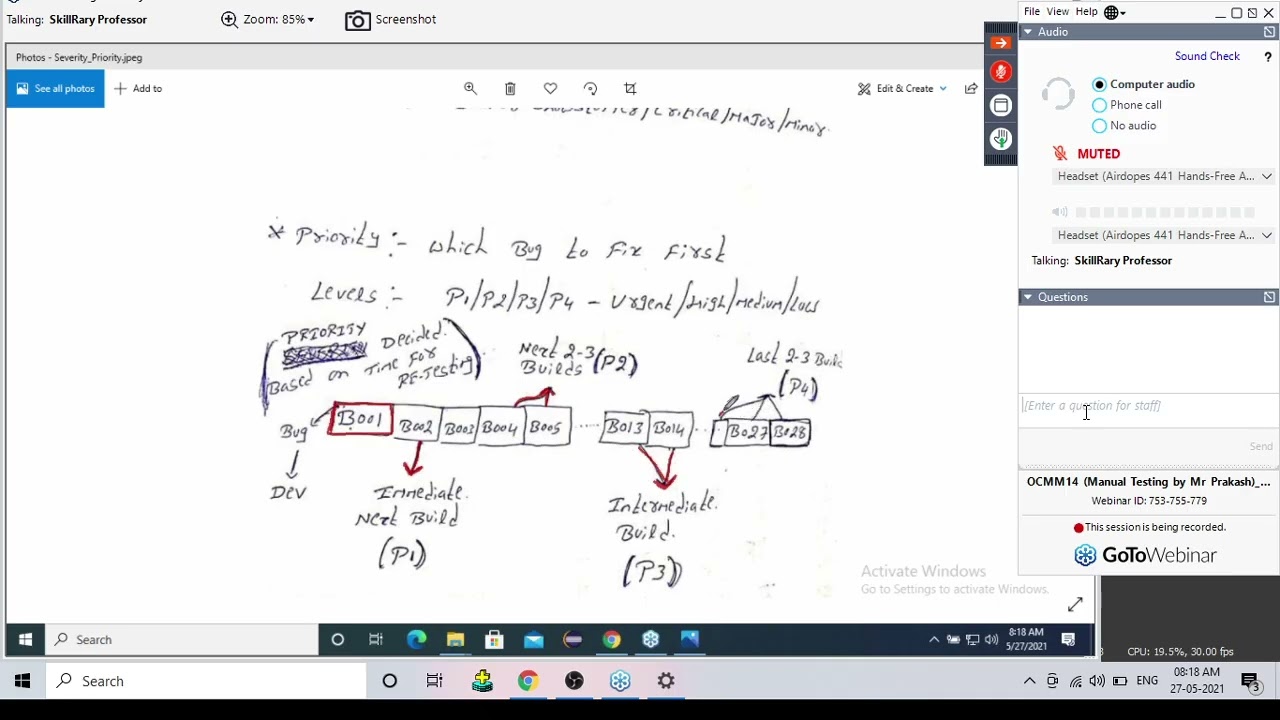 Talking: SkillRary Professor
Zoom: 85%
Screenshot
File View Help
Audio
Sound Check ?
Computer audio
Phone call
No audio
MUTED
Headset (Airdopes 441 Hands-Free A...
Headset (Airdopes 441 Hands-Free A...
Talking: SkillRary Professor
Questions
[Enter a question for staff]
Send
OCMM14 (Manual Testing by Mr Prakash)_...
Webinar ID: 753-755-779
This session is being recorded.
GoToWebinar
Photos - Severity_Priority.jpeg
See all photos
Add to
Edit & Create
/Critical/Major/Minor.
* Priority :- Which Bug to Fix First
Levels :- P1/P2/P3/P4 - Urgent/High/Medium/Low
PRIORITY
Decided.
Based on Time for
RE-Testing
Next 2-3
Builds (P2)
Last 2-3 Build
(P4)
B001 B002 B003 B004 B005 ...... B013 B014 ... B027 B028
Bug
Dev
Immediate.
Next Build
(P1)
Intermediate.
Build.
(P3)
Activate Windows
Go to Settings to activate Windows.
Search
8:18 AM
5/27/2021
CPU: 19.5%, 30.00 fps
Search
ENG
08:18 AM
27-05-2021
3